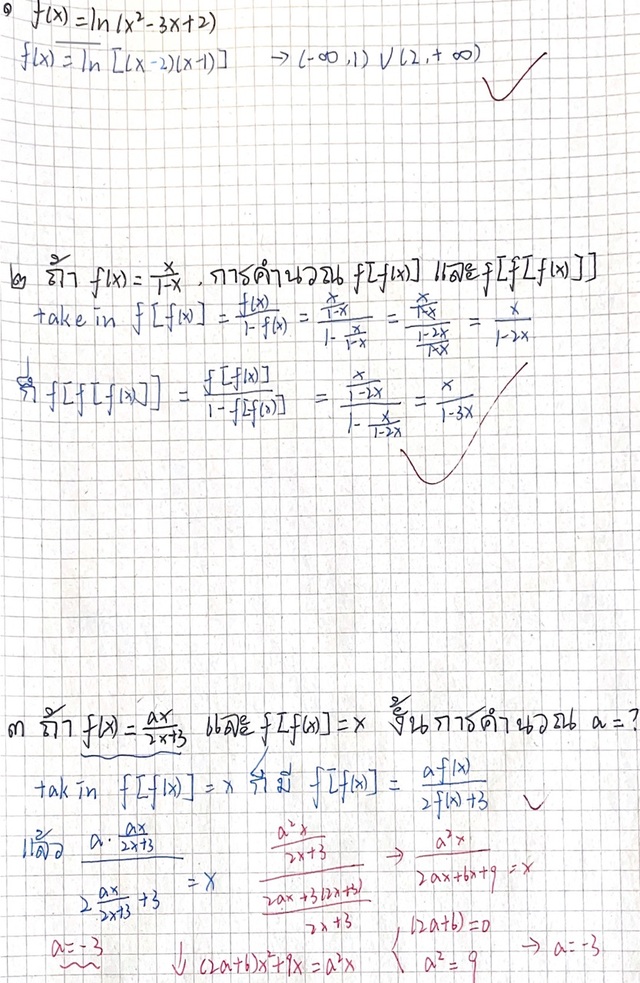 ๑ f(x) = ln(x²-3x+2)
f(x) = ln [(x-2)(x-1)] → (-∞,1) ∪ (2,+∞)
๒ ถ้า f(x) = x/(1-x) , การคำนวณ f[f(x)] และ f[f[f(x)]]
take in f[f(x)] = f(x)/(1-f(x)) = (x/(1-x))/(1-x/(1-x)) = (x/(1-x))/((1-2x)/(1-x)) = x/(1-2x)
ก็ f[f[f(x)]] = f[f(x)]/(1-f[f(x)]) = (x/(1-2x))/(1-x/(1-2x)) = x/(1-3x)
๓ ถ้า f(x) = ax/(2x+3) และ f[f(x)] = x งั้นการคำนวณ a = ?
tak in f[f(x)] = x ก็มี f[f(x)] = af(x)/(2f(x)+3)
แล้ว (a·ax/(2x+3))/(2ax/(2x+3)+3) = x (a²x/(2x+3))/((2ax+3(2x+3))/(2x+3)) → a²x/(2ax+6x+9) = x
a=-3 ↓ (2a+6)x²+9x = a²x { (2a+6)=0 a²=9 → a=-3